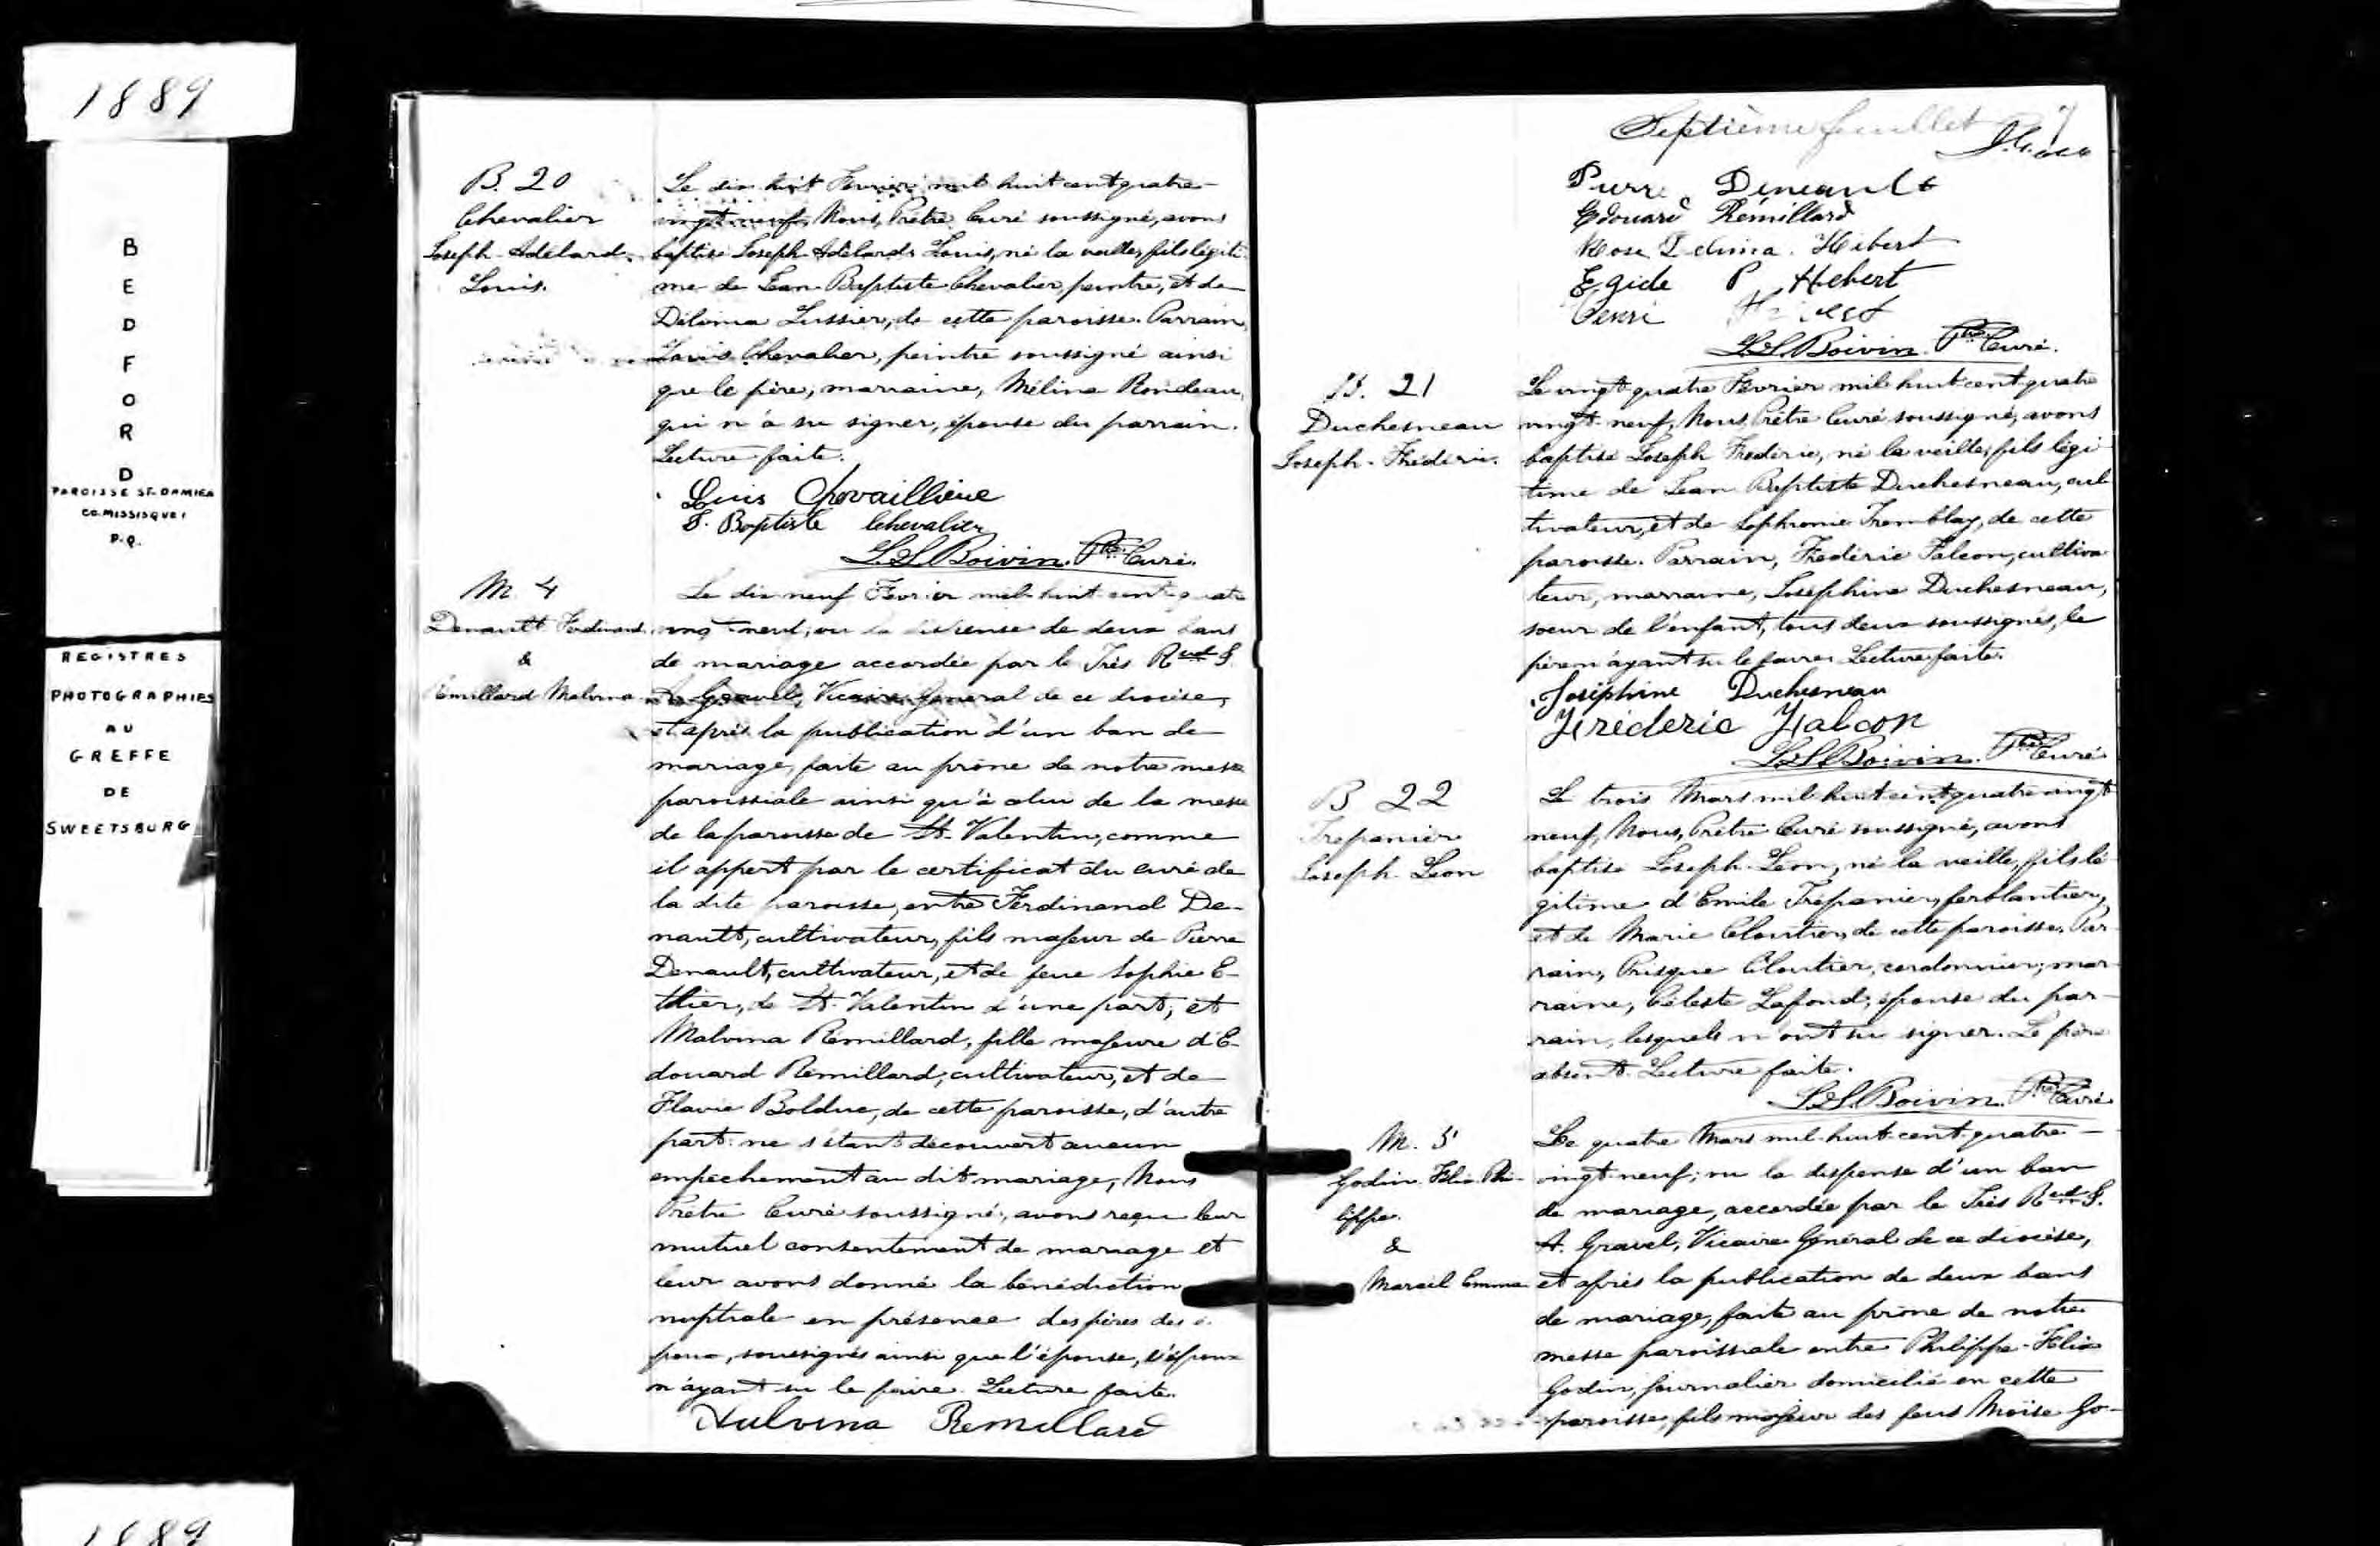 1889
B
E
D
F
O
R
D
PAROISSE ST-DAMIEN
CO. MISSISQUOI
P.Q.
REGISTRES
PHOTOGRAPHIES
AU
GREFFE
DE
SWEETSBURG
1889
B. 20
Chevalier
Joseph-Adélard-
Louis.
Le dix-huit Fevrier mil huit cent quatre-
vingt-neuf, Nous, Prêtre Curé soussigné, avons
baptisé Joseph-Adélard-Louis, né la veille, fils légiti-
me de Jean-Baptiste Chevalier, peintre, et de
Délima Lussier, de cette paroisse. Parrain,
Louis Chevalier, peintre soussigné ainsi
que le père, marraine, Mélina Rondeau,
qui n'a su signer, épouse du parrain.
Lecture faite.
Louis Chevaillieue
J. Baptiste Chevalier
L.S. Boivin Ptre Curé.
M. 4
Denault Ferdinand
&
Rémillard Malvina
Le dix-neuf Fevrier mil-huit-cent-quatre
vingt-neuf; vu la dispense de deux bans
de mariage accordée par le Très Rvd J.
A. Gravel, Vicaire Général de ce diocèse,
et après la publication d'un ban de
mariage, faite au prône de notre messe
paroissiale ainsi qu'à celui de la messe
de la paroisse de St-Valentin, comme
il appert par le certificat du curé de
la dite paroisse, entre Ferdinand De-
nault, cultivateur, fils majeur de Pierre
Denault, cultivateur, et de feue Sophie E-
thier, de St-Valentin d'une part; et
Malvina Rémillard, fille majeure d'E-
douard Rémillard, cultivateur, et de
Flavie Bolduc, de cette paroisse, d'autre
part: ne s'étant découvert aucun
empechement au dit mariage, Nous
Prêtre Curé soussigné, avons reçu leur
mutuel consentement de mariage et
leur avons donné la bénédiction
nuptiale en présence des pères des é-
poux, soussignés ainsi que l'épouse, l'époux
n'ayant su le faire. Lecture faite.
Malvina Remillard
Septième feuillet 7
Pierre Deneault
Edouard Rémillard
Rose Hébert
Egide P Hebert
Henri
L.S. Boivin Ptre Curé.
B. 21
Duchesneau
Joseph-Frédéric.
Le vingt quatre Fevrier mil-huit-cent-quatre
vingt-neuf, Nous, Prêtre Curé soussigné, avons
baptisé Joseph Frédéric, né la veille, fils légi-
time de Jean Baptiste Duchesneau, cul-
tivateur, et de Sophronie Tremblay, de cette
paroisse. Parrain, Frédéric Falcon, cultiva-
teur, marraine, Joséphine Duchesneau,
soeur de l'enfant, tous deux soussignés, le
père n'ayant su le faire. Lecture faite.
Joséphine Duchesneau
Fréderic Falcon
L.S. Boivin Ptre Curé
B 22
Trepanier
Joseph-Leon
Le trois Mars mil-huit-cent-quatre-vingt
neuf, Nous, Prêtre Curé soussigné, avons
baptisé Joseph-Léon, né la veille, fils lé-
gitime d'Emile Trépanier, ferblantier,
et de Marie Cloutier, de cette paroisse. Par-
rain, Prisque Cloutier, cordonnier; mar-
raine, Céleste Lafond, épouse du par-
rain, lesquels n'ont su signer. Le père
absent. Lecture faite.
L.S. Boivin Ptre Curé
M. 5
Godin Félix Phi-
lippe.
&
Marcil Emma
Le quatre Mars mil-huit-cent-quatre-
vingt-neuf; vu la dispense d'un ban
de mariage, accordée par le Très Rvd J.
A. Gravel, Vicaire Général de ce diocèse,
et après la publication de deux bans
de mariage, faite au prône de notre
messe paroissiale entre Philippe-Félix
Godin, journalier domicilié en cette
paroisse, fils majeur des feus Moïse Go-